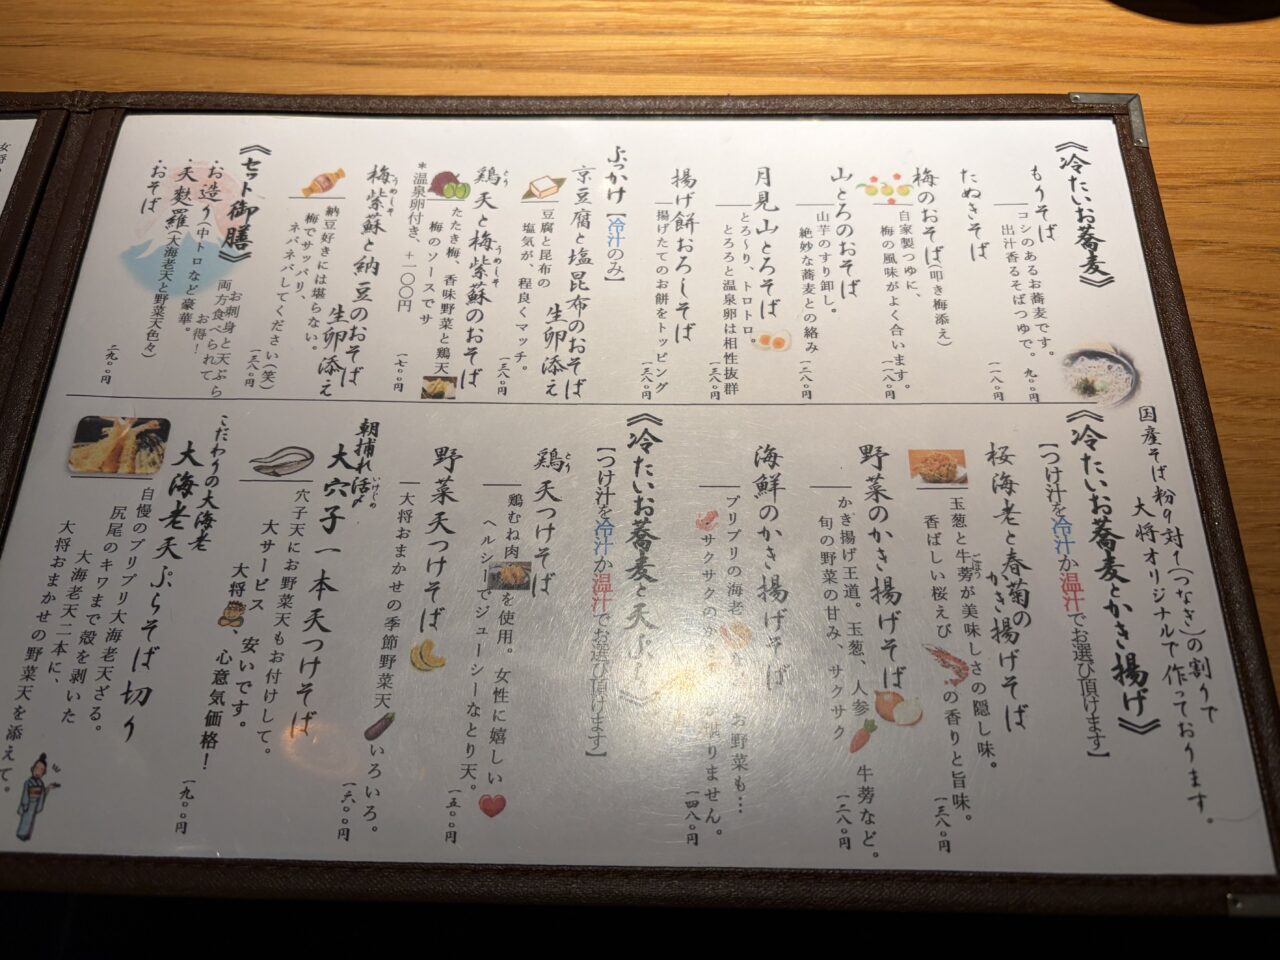 《冷たいお蕎麦》
もりそば
コシのあるお蕎麦です。
出汁香るそばつゆで。
九〇〇円
たぬきそば
一一八〇円
梅のおそば(叩き梅添え)
自家製つゆに、
梅の風味がよく合います。
一一八〇円
山とろのおそば
山芋のすり卸し。
絶妙な蕎麦との絡み
一二八〇円
月見山とろそば
とろ〜り、トロトロ。
とろろと温泉卵は相性抜群
一三八〇円
揚げ餅おろしそば
揚げたてのお餅をトッピング
一三八〇円
ぶっかけ【冷汁のみ】
京豆腐と塩昆布のおそば
生卵添え
豆腐と昆布の
塩気が、程良くマッチ。
一三八〇円
鶏天と梅紫蘇のおそば
とう
うめしそ
たたき梅、香味野菜と鶏天
梅のソースでサ
*温泉卵付き、+一〇〇円
梅紫蘇と納豆のおそば
うめしそ
生卵添え
納豆好きには堪らない。
梅でサッパリ、
ネバネバしてください(笑)
一三八〇円
《セット御膳》
お刺身と天ぷら
両方食べられて
お得!
・お造り(中トロなど豪華。
・天麩羅(大海老天と野菜天色々)
・おそば
二九〇〇円
国産そば粉9対1(つなぎ)の割りで
大将オリジナルで作っております。
《冷たいお蕎麦とかき揚げ》
【つけ汁を冷汁か温汁でお選び頂けます】
桜海老と春菊の
かき揚げそば
玉葱と牛蒡が美味しさの隠し味。
ごぼう
香ばしい桜えび
の香りと旨味。
一三八〇円
野菜のかき揚げそば
かき揚げ王道。玉葱、人参
牛蒡など。
旬の野菜の甘み、サクサク
一二八〇円
海鮮のかき揚げそば
プリプリの海老
お野菜も…
サクサクのか
りません。
一四八〇円
《冷たいお蕎麦と天ぷら》
【つけ汁を冷汁か温汁でお選び頂けます】
鶏天つけそば
とり
鶏むね肉
を使用。女性に嬉しい
ヘルシーでジューシーなとり天。
一五〇〇円
野菜天つけそば
大将おまかせの季節野菜天
いろいろ。
朝捕れ活〆
いけじめ
大穴子一本天つけそば
一六〇〇円
穴子天にお野菜天もお付けして。
大サービス
安いです。
大将
、心意気価格!
こだわりの大海老
大海老天ぷらそば切り
一九〇〇円
自慢のプリプリ大海老天ざる。
尻尾のキワまで殻を剥いた
大海老天二本に、
大将おまかせの野菜天を添えて。